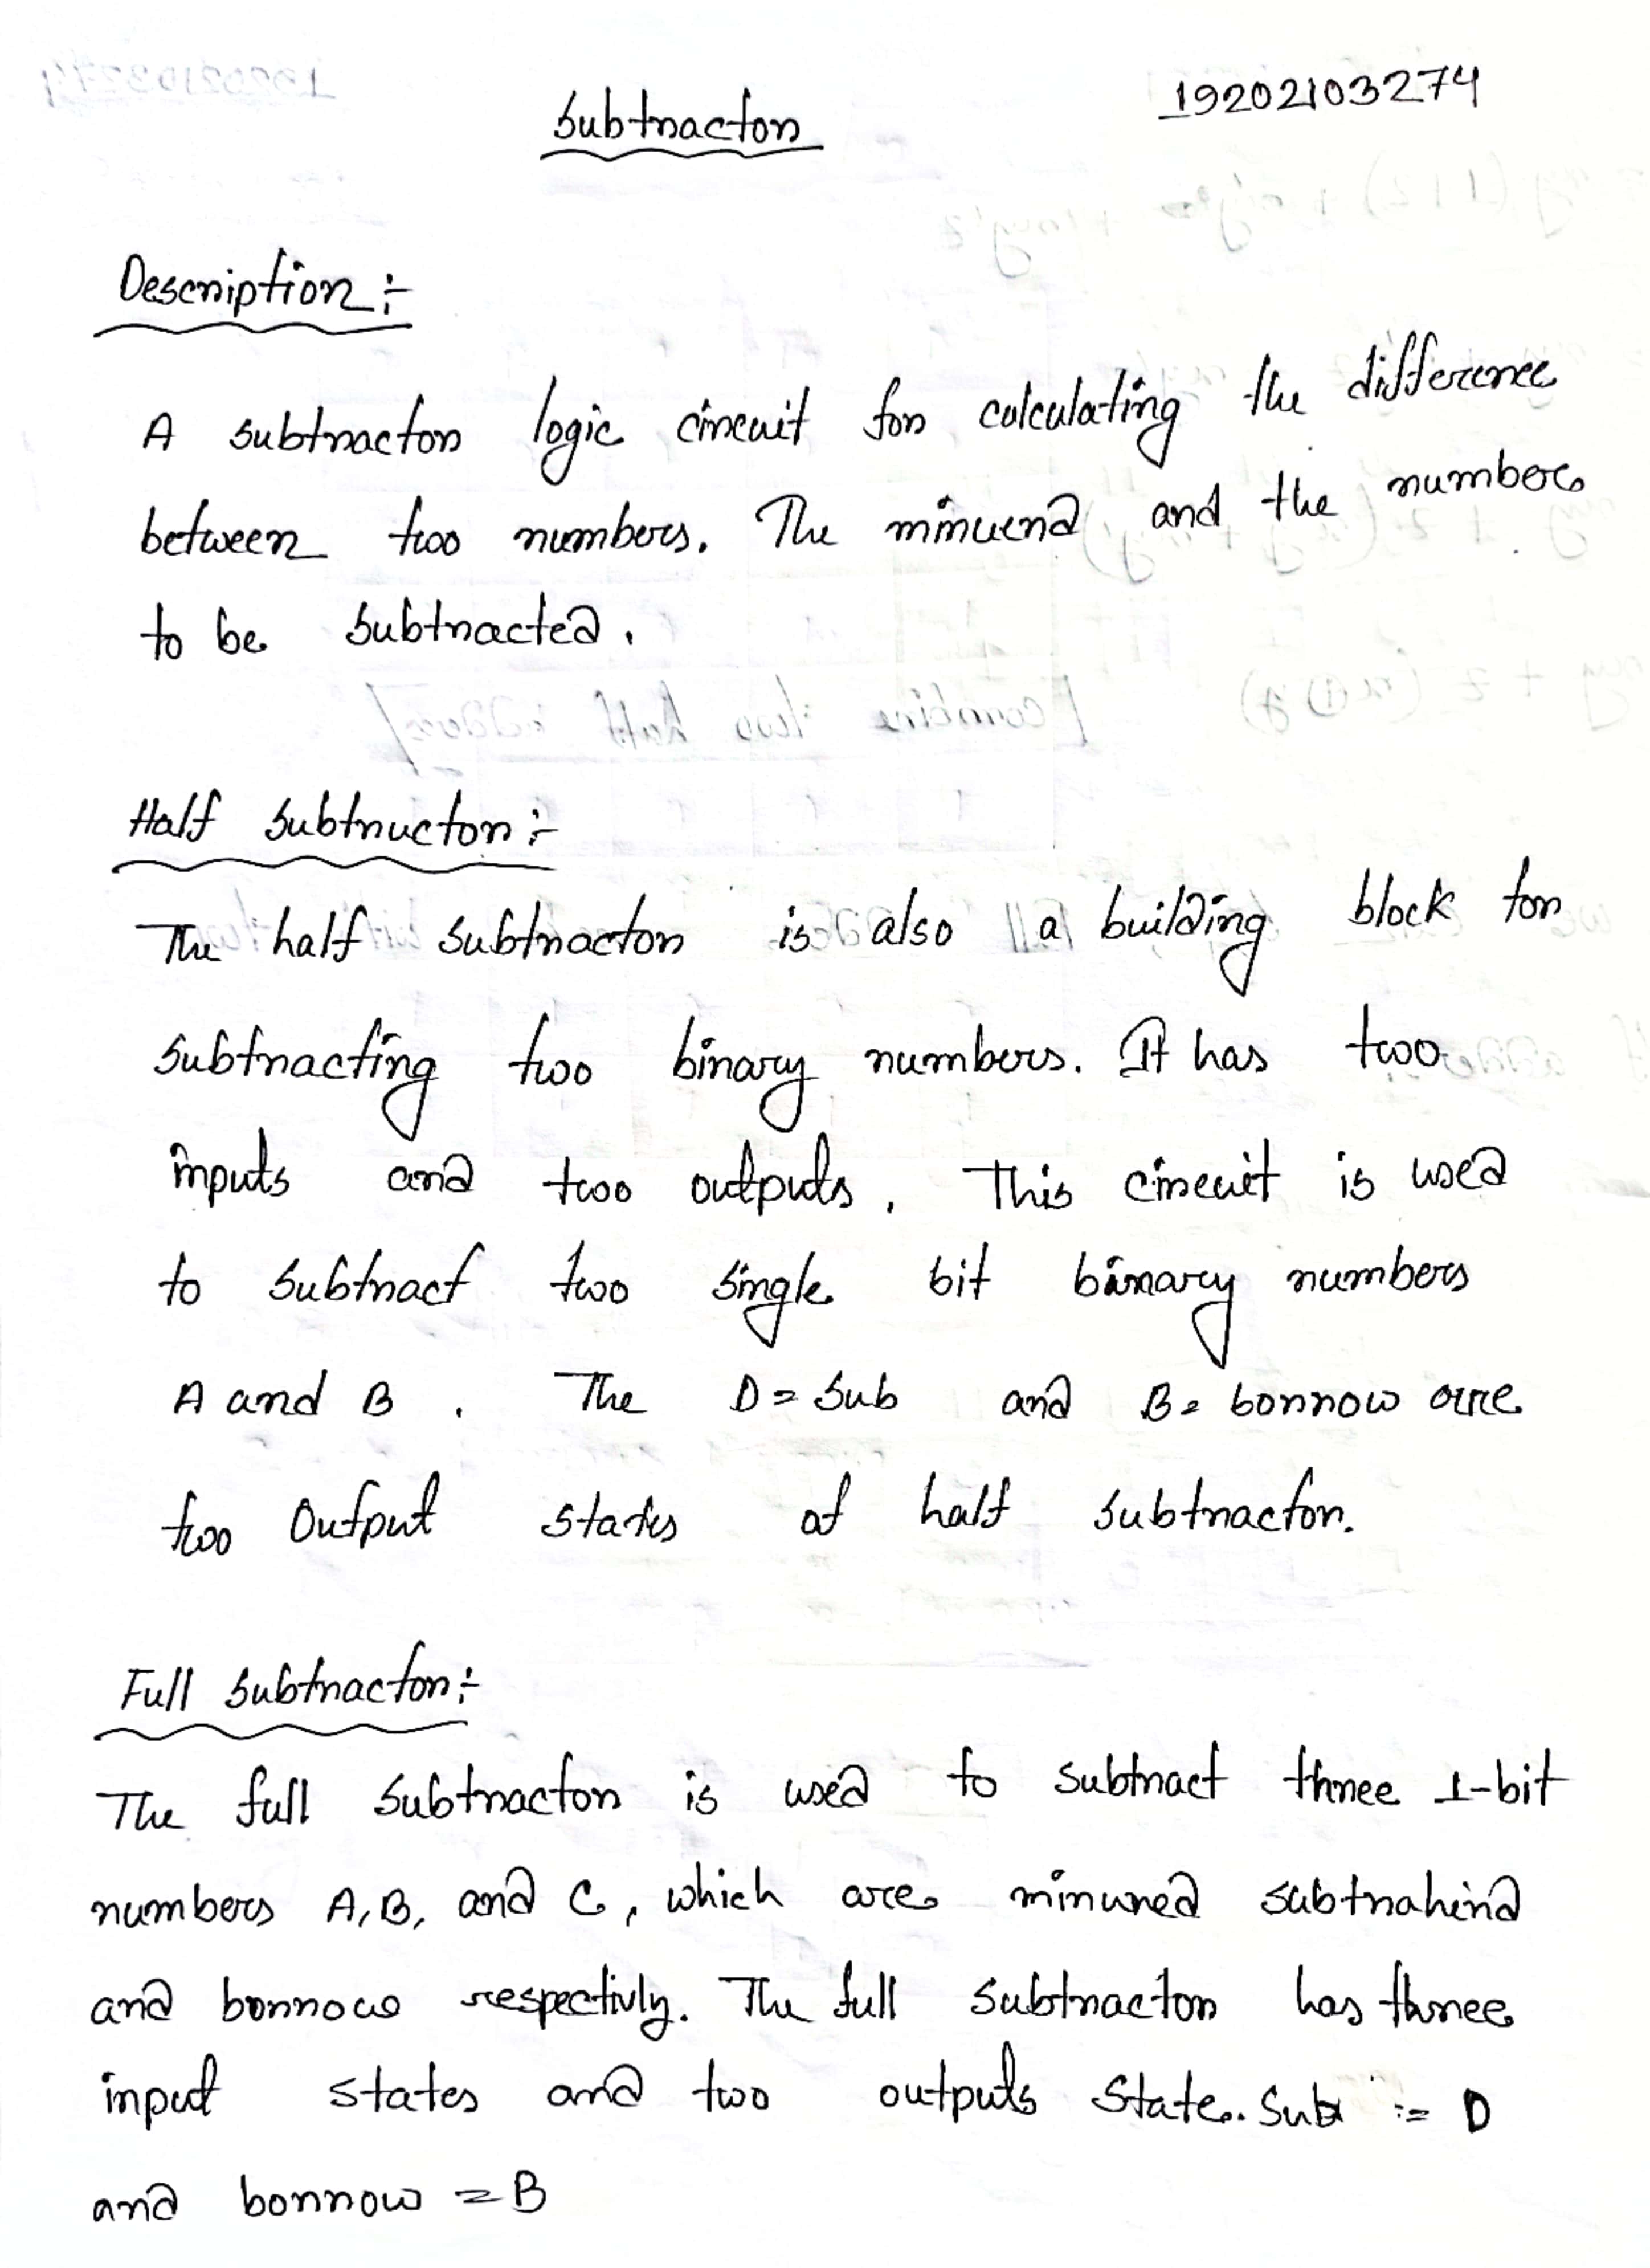 19202103274
Subtractor
Description :-
A subtractor logic circuit for calculating the difference
between two numbers. The minuend and the number
to be subtracted.
Half Subtructor :-
The half subtractor is also a building block for
subtracting two binary numbers. It has two
inputs and two outputs. This circuit is used
to subtract two single bit binary numbers
A and B. The D = Sub and B = borrow are
two Output states of half subtractor.
Full Subtractor :-
The full subtractor is used to subtract three 1-bit
numbers A, B, and C, which are minuned subtrahind
and borrow respectivly. The full subtractor has three
input states and two outputs state. Sub := D
and borrow = B